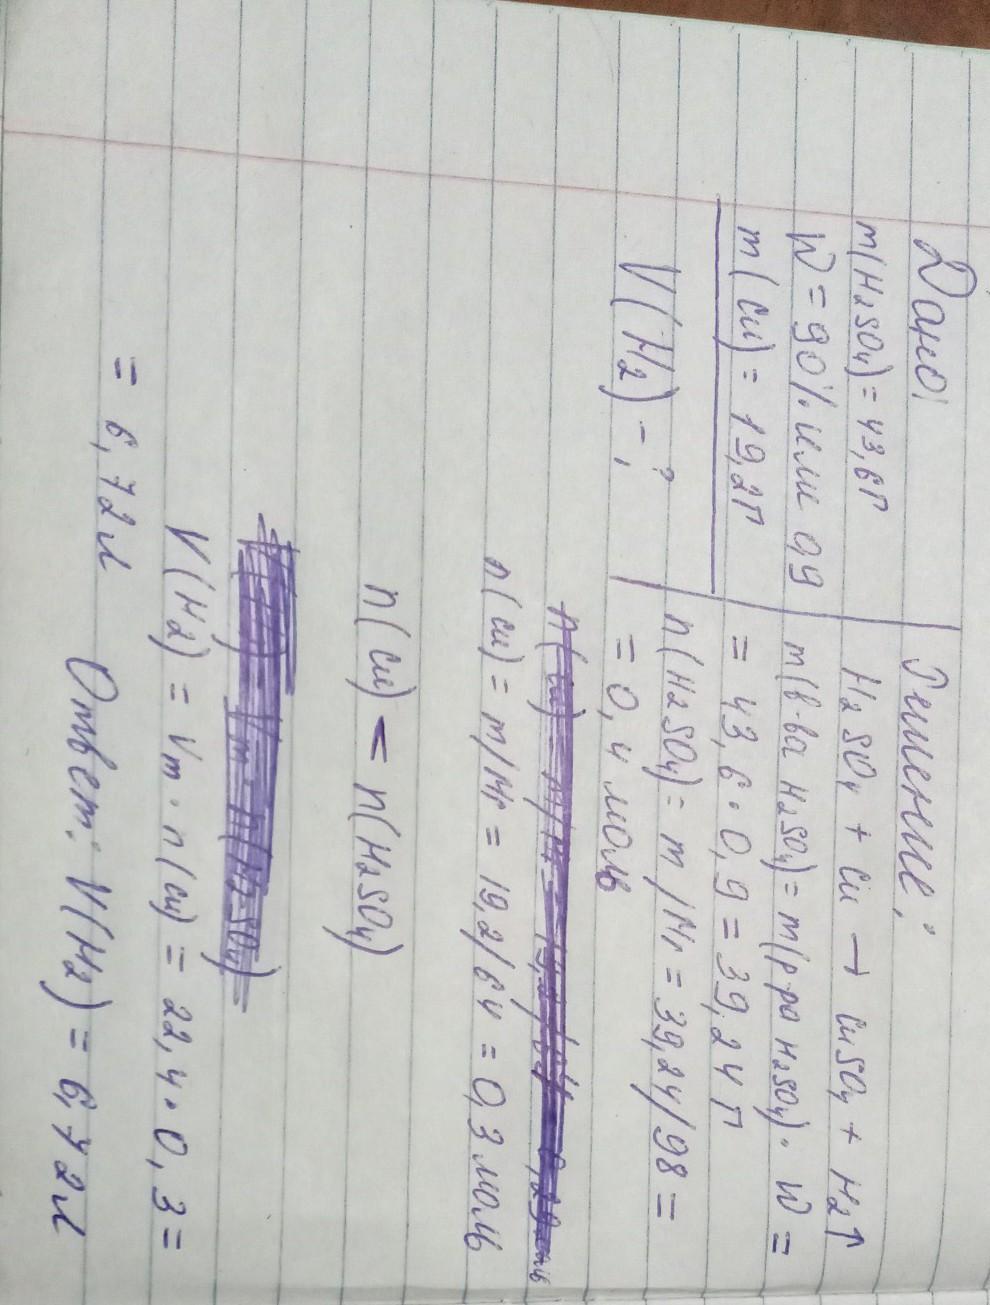 Дано:
m(H₂SO₄) = 43,6г
W = 90% или 0,9
m(Cu) = 19,2г
V(H₂) - ?
Решение:
H₂SO₄ + Cu → CuSO₄ + H₂↑
m(в-ва H₂SO₄) = m(р-ра H₂SO₄) · W =
= 43,6 · 0,9 = 39,24 г
n(H₂SO₄) = m/Mr = 39,24/98 =
= 0,4 моль
n(Cu) = m/Mr = 19,2/64 = 0,3 моль
n(Cu) < n(H₂SO₄)
V(H₂) = Vm · n(Cu) = 22,4 · 0,3 =
= 6,72л
Ответ: V(H₂) = 6,72л